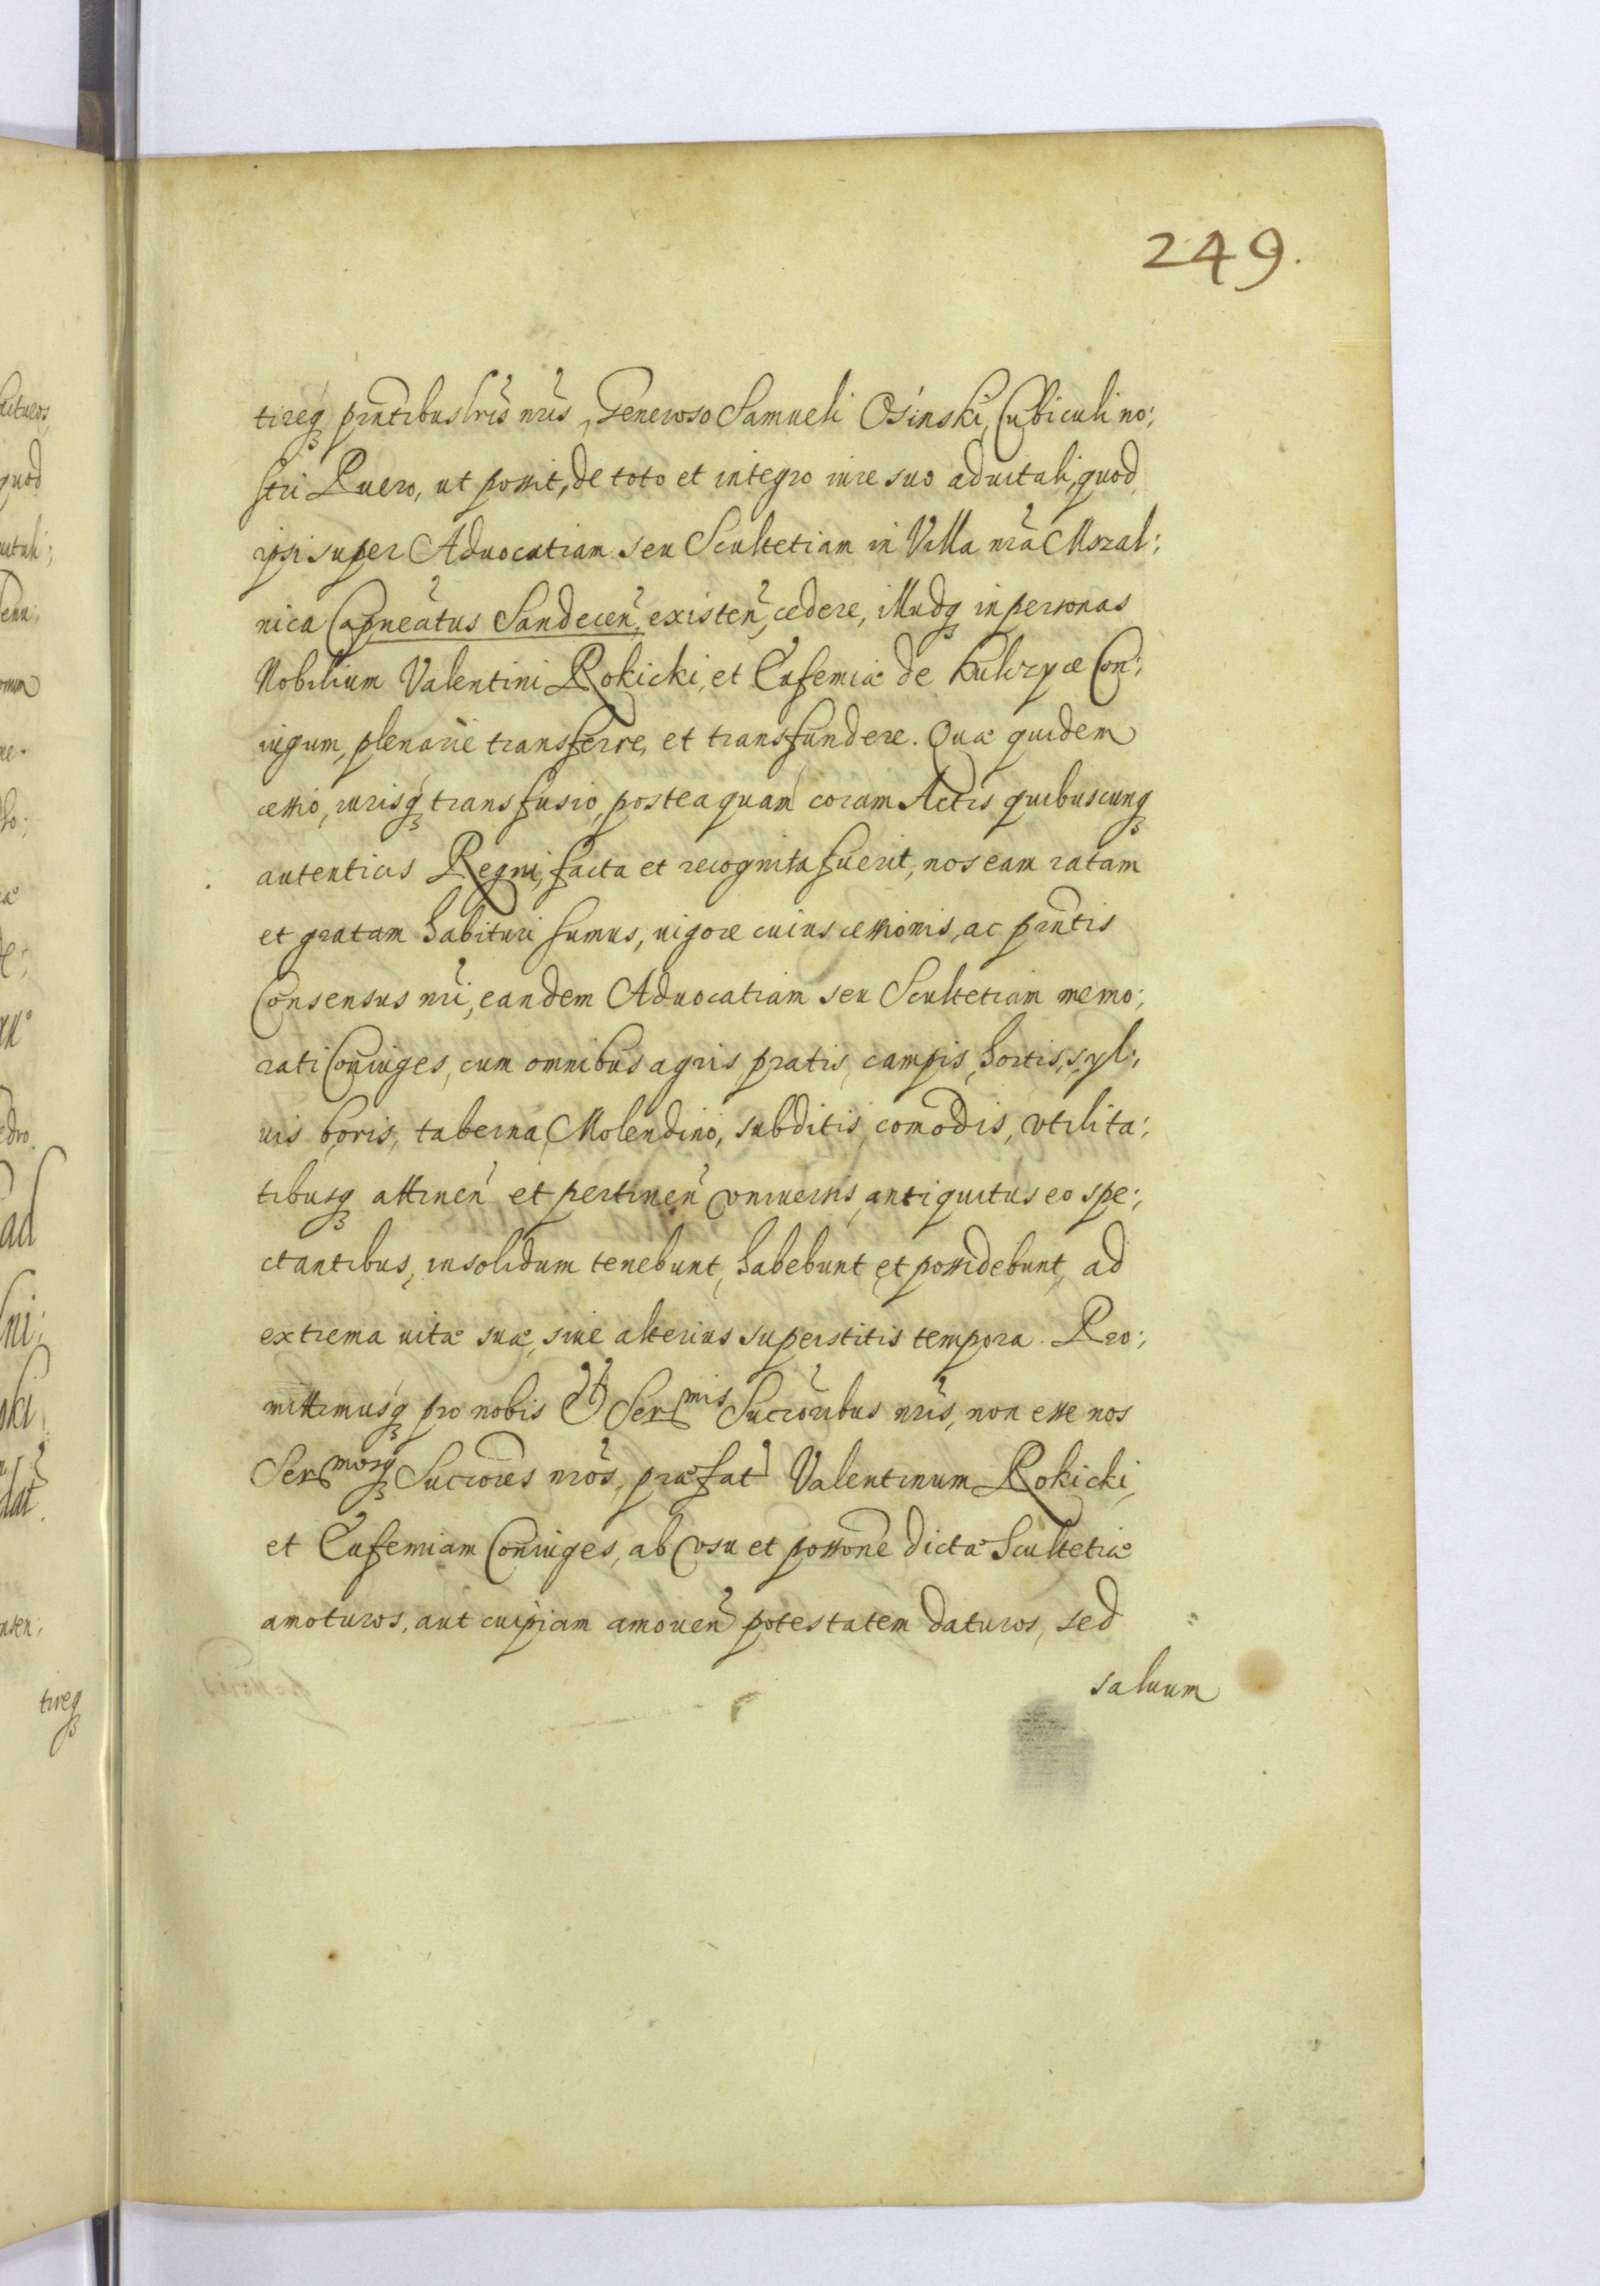 249.
tireq₃ pñtibus lr̃is nr̃is, Generoso Samueli Osinski, Cubiculi no:
stri Puero, ut possit, de toto et integro iure suo aduitali, quod
ipsi super Aduocatiam seu Scultetiam in Villa nr̃a Mszal:
nica Capneãtus Sandecen̄, existen̄, cedere, illudq₃ in personas
Nobilium Valentini Rokicki, et Eufemiæ de
iugum, plenarie transferre, et transfundere. Quæ quidem
cessio, iurisq₃ transfusio, posteaquam coram Actis quibuscunq₃
autenticis Regni, facta et recognita fuerit, nos eam ratam
et gratam habituri sumus, uigore cuius cessionis, ac pñtis
Consensus nr̃i, eandem Aduocatiam seu Scultetiam memo:
rati Coniuges, cum omnibus agris, pratis, campis, hortis, syl:
uis boris, taberna, Molendino, subditis, com̃odis, vtilita:
tibusq₃ attinen̄ et pertinen̄ vniuersis, antiquitus eo spe:
ctantibus, insolidum tenebunt, habebunt et possidebunt, ad
extrema uitæ suæ, siue alterius superstitis tempora. Pro:
mittimusq₃ pro nobis et Ser^mis Succr̃ibus nr̃is, non esse nos
Ser^mosq₃ Succores nr̃os, præfat Valentinum Rokicki,
et Eufemiam Coniuges, ab vsu et poss̃one dictæ Scultetiæ
amoturos, aut cuipiam amouen̄ potestatem daturos, sed
saluum
tireq₃